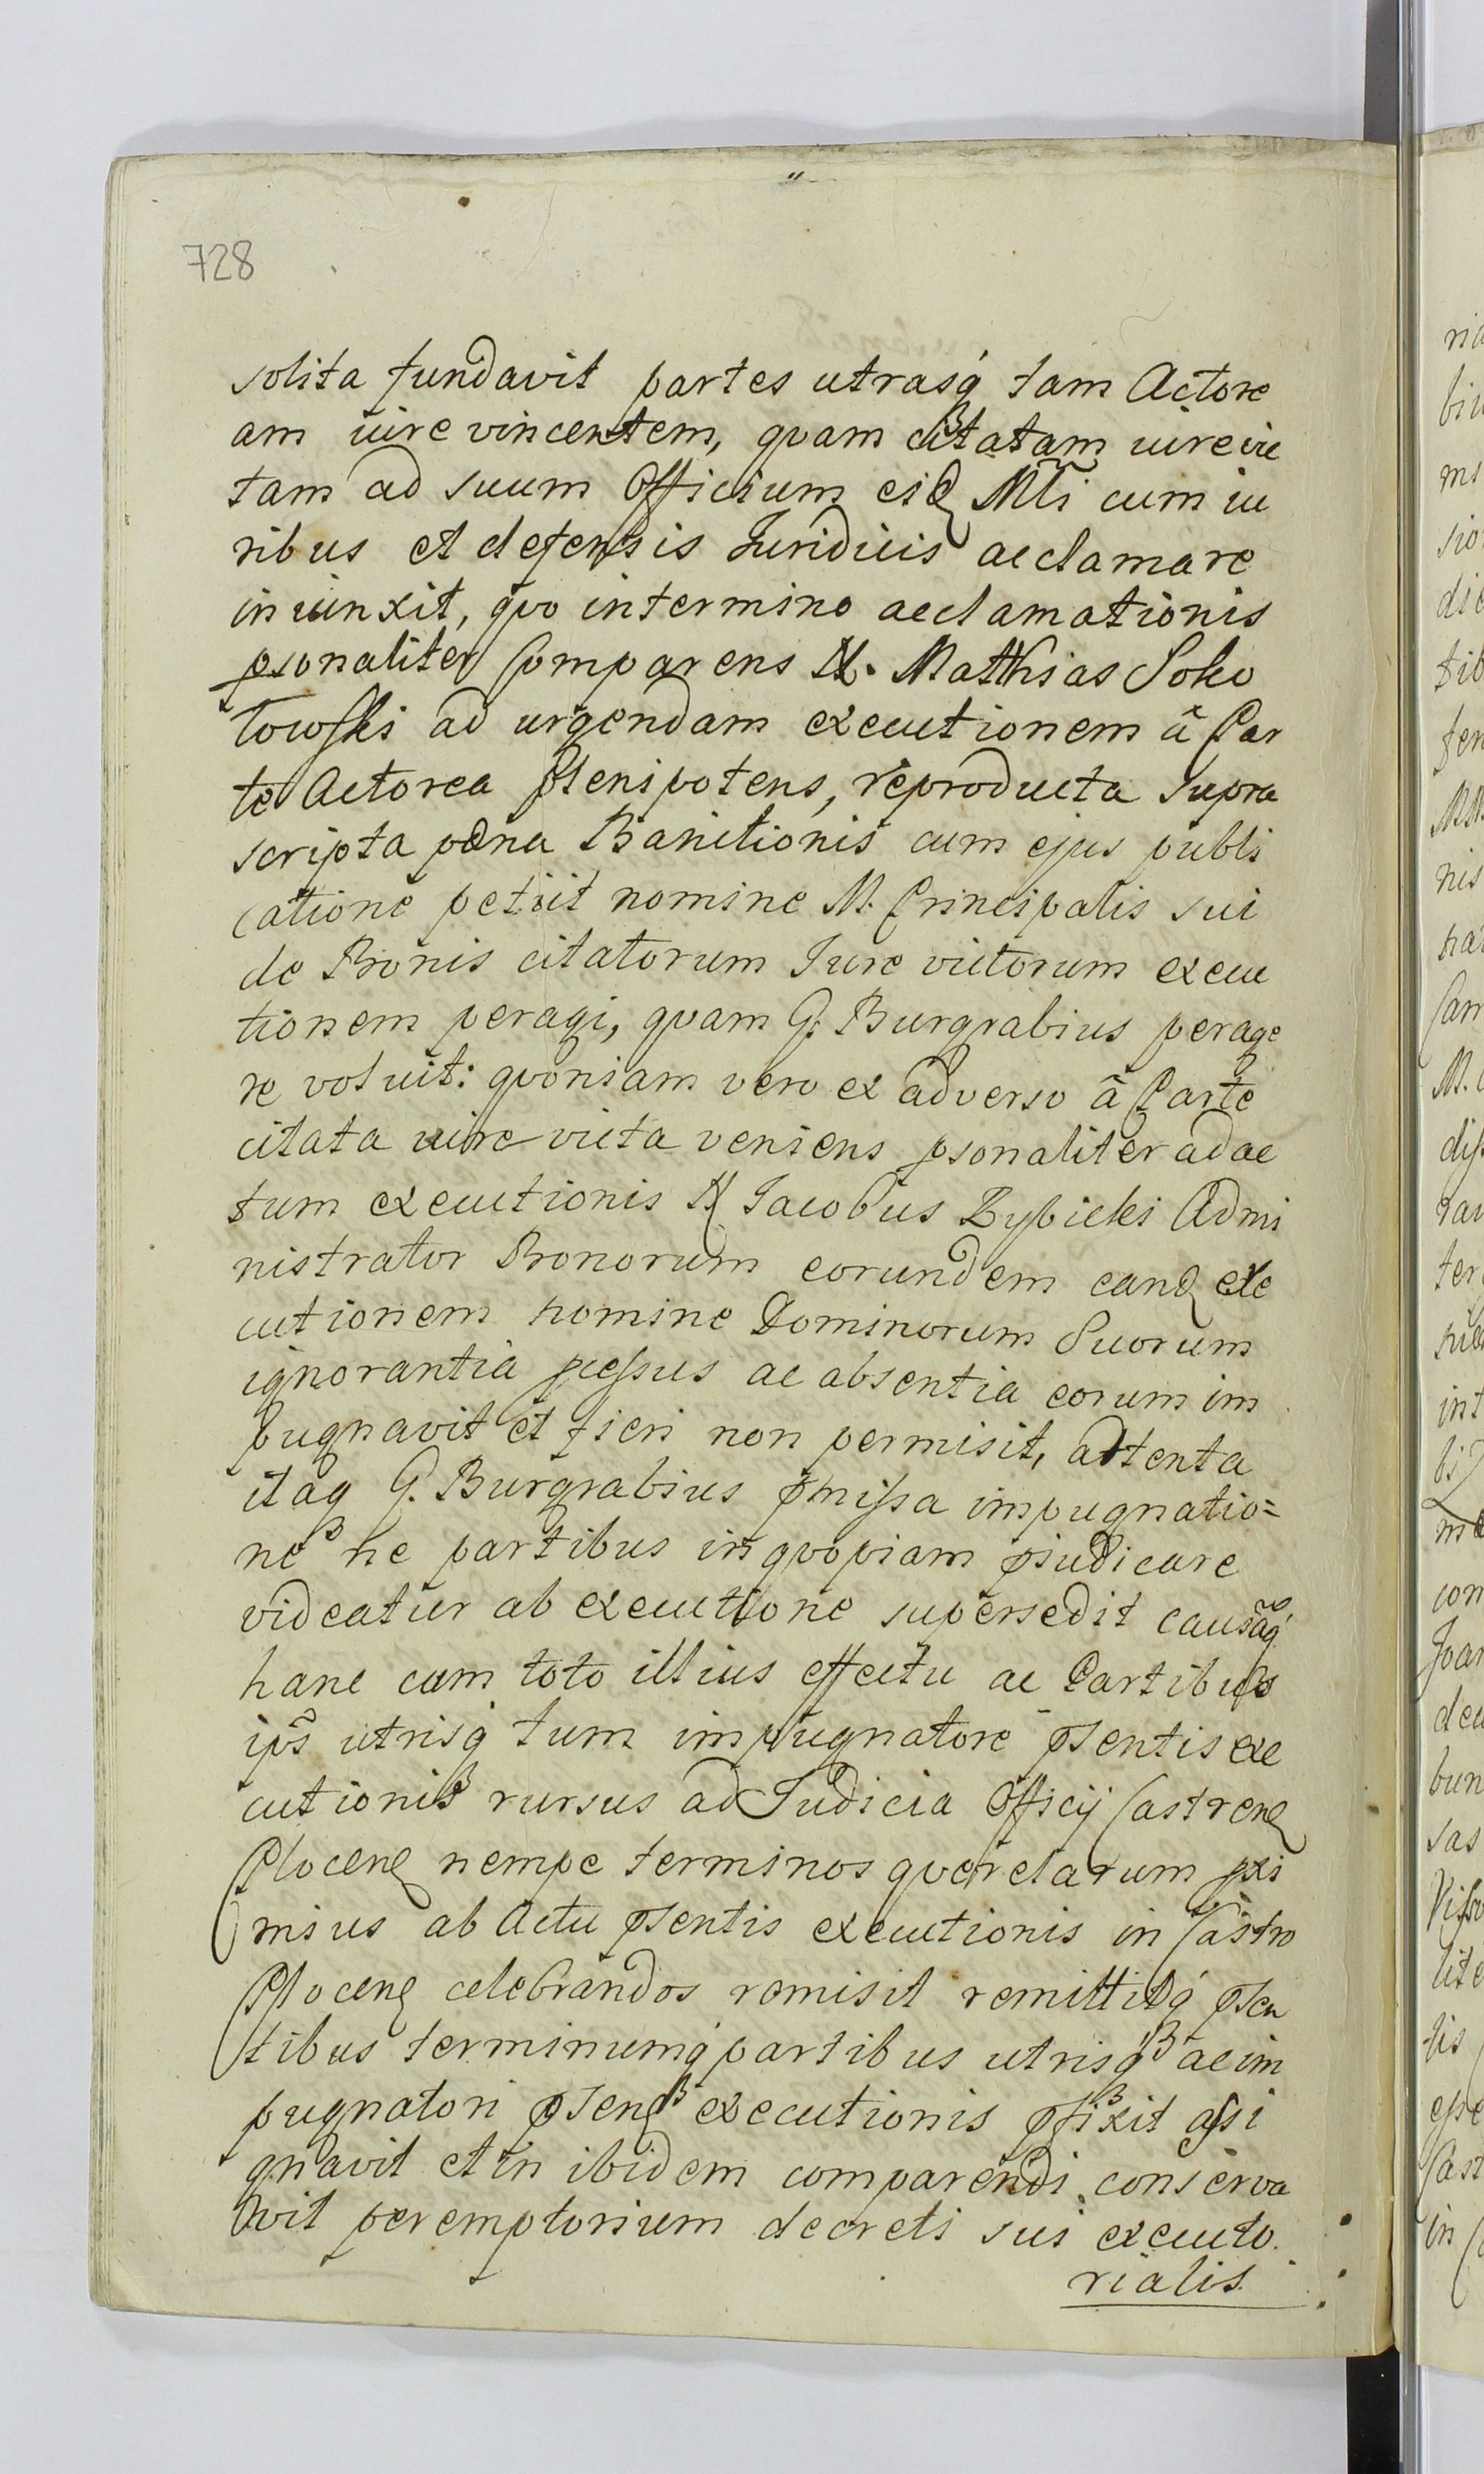 728
solita fundavit partes utrasq́ tam Actore
am iure vincentem, quam citatam iure vic
tam ad suum Officium eiq Mti cum iu
ribus et defensis Iuridicis acclamare
iniunxit, quo intermino acclamationis
psonaliter Comparens N. Matthias Soko
lowski ad urgendam executionem â Par
te Actorea plenipotens, reproducta supra
scripta pœna Banitionis cum ejus publi
catione petiit nomine M. Principalis sui
de Bonis citatorum Iure victorum execu
tionem peragi, quam G. Burgrabius perage
re voluit: quoniam vero ex adverso â Parte
citata iure victa veniens psonaliter ad ac
tum executionis N Iacobus Rybicki Admi
nistrator Bonorum eorundem eandq exe
cutionem nomine Dominorum Suorum
ignorantia pcessus ac absentia eorum im
pugnavit et fieri non permisit, attenta
itaq G. Burgrabius pmissa impugnatio=
ne ne partibus in quopiam pjudicare
videatur ab executione supersedit causãq́
hanc cum toto illius effectu ac Partibus
ipš utrisq́ tum impugnatore psentis exe
cutionis rursus ad Iudicia Officij Castrenq
Plocenq nempe terminos querelarum pxi
mius ab Actu psentis executionis in Castro
Plocenq celebrandos remisit remittitq́ psen
tibus terminumq́ partibus utrisq́ ac im
pugnatori psenq executionis pfixit assi
gnavit et in ibidem comparendi conserva
vit peremptorium decreti sui executo
rialis